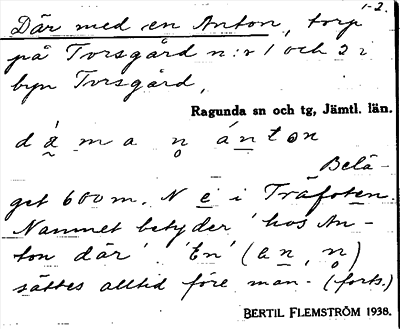 1-2.
Där med en Anton, torp
på Torsgård n:r 1 och 2 i
byn Torsgård,
Ragunda sn och tg, Jämtl. län.
då̰ m a n̥ ánton
Belä-
get 600 m. N e i Träfoten.
Namnet betyder 'hos An-
ton där'. 'En' (an, n̥)
sättes alltid före man- (forts.)
BERTIL FLEMSTRÖM 1938.